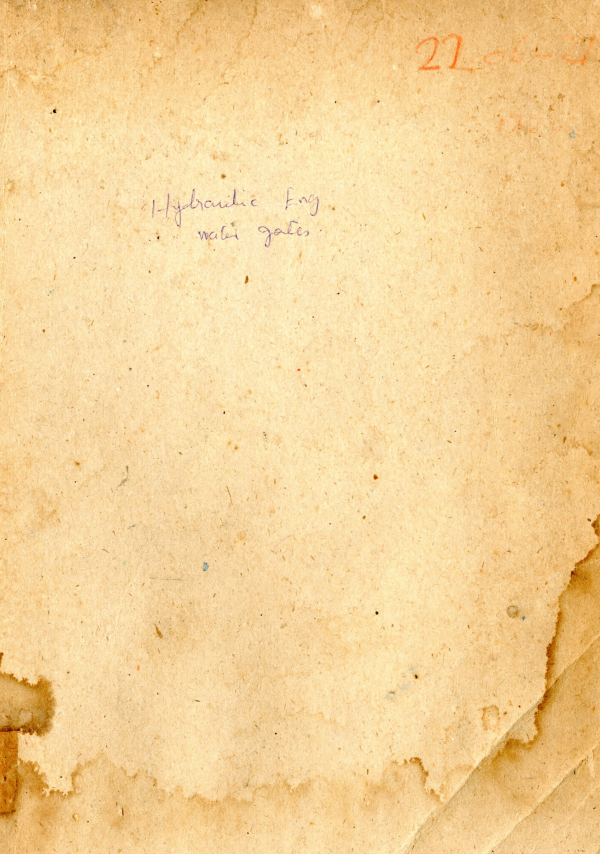 22
Hydraulic Eng
water gates